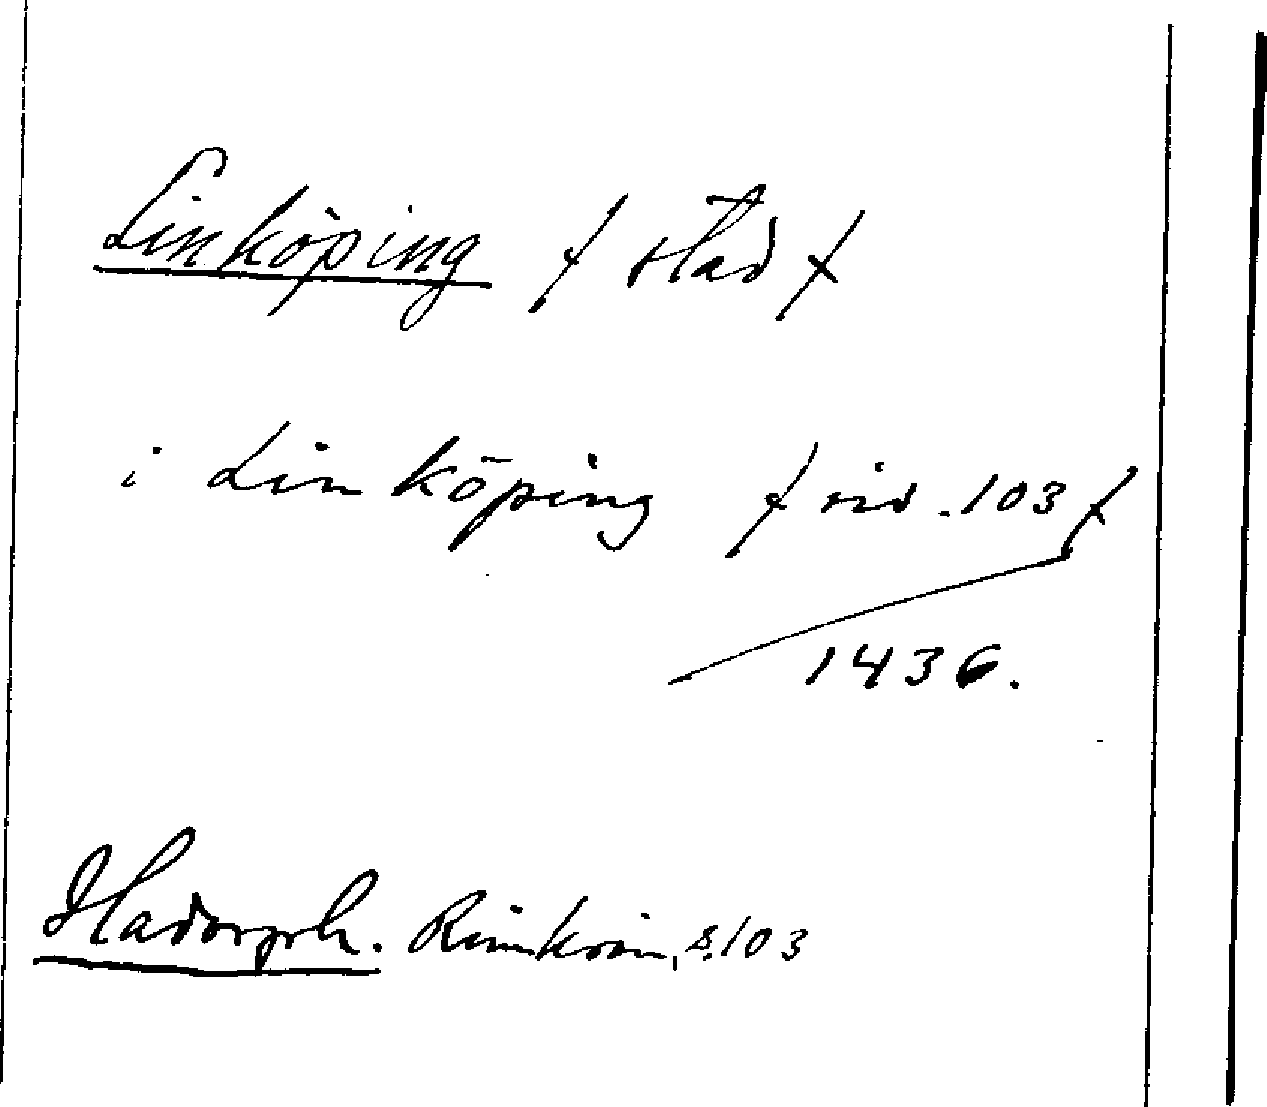 Linköping / stad /
i Linköping / sid. 103 /
1436.
Hadorph. Rimkrön, s. 103